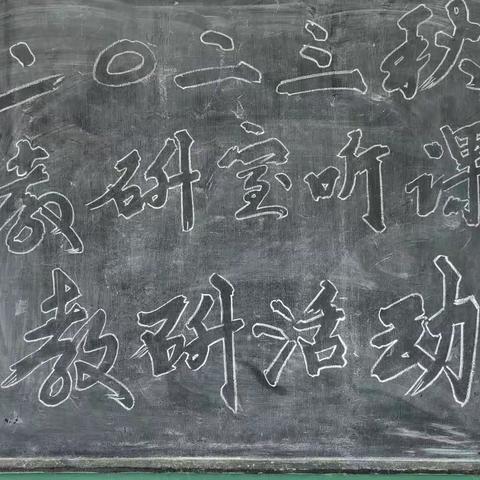 二〇二三秋
教研室听课
教研活动